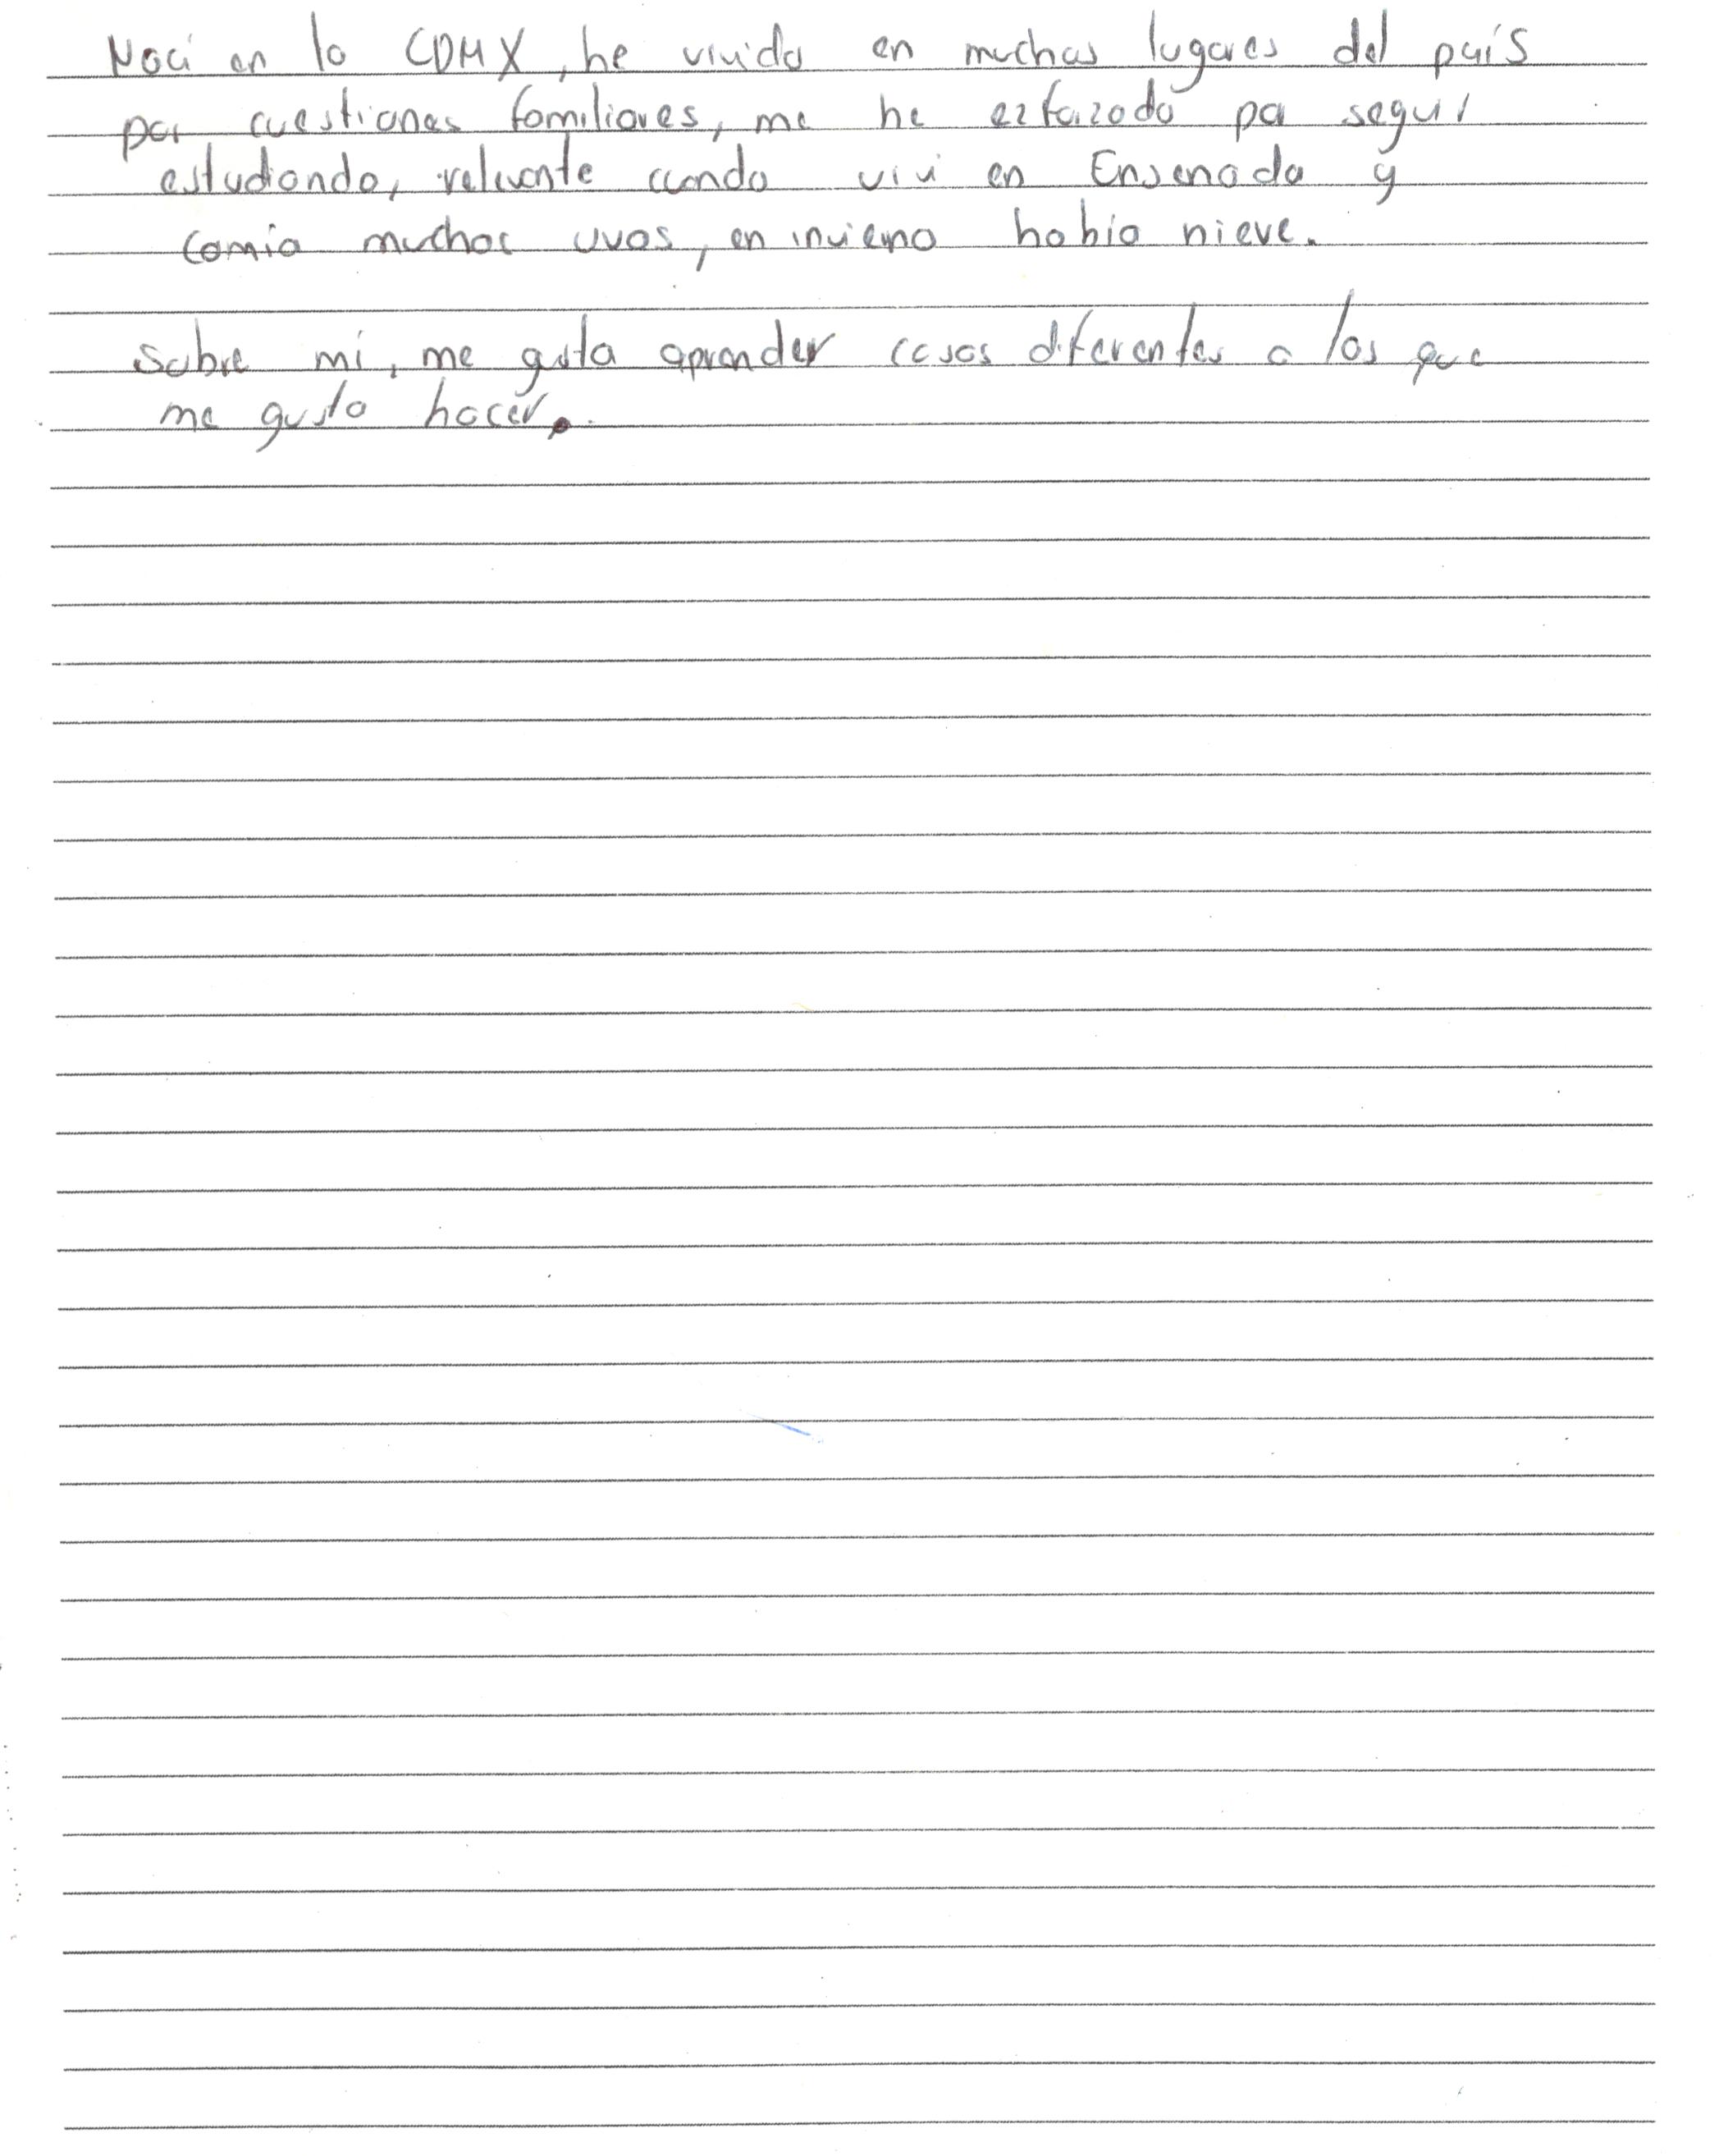 Nací en la CDMX, he vivido en muchos lugares del país
por cuestiones familiares, me he ezforzado por seguir
estudiando, relevante cuando viví en Ensenada y
comía muchas uvas, en invierno había nieve.
Sobre mí, me gusta aprender cosas diferentes a las que
me gusta hacer.